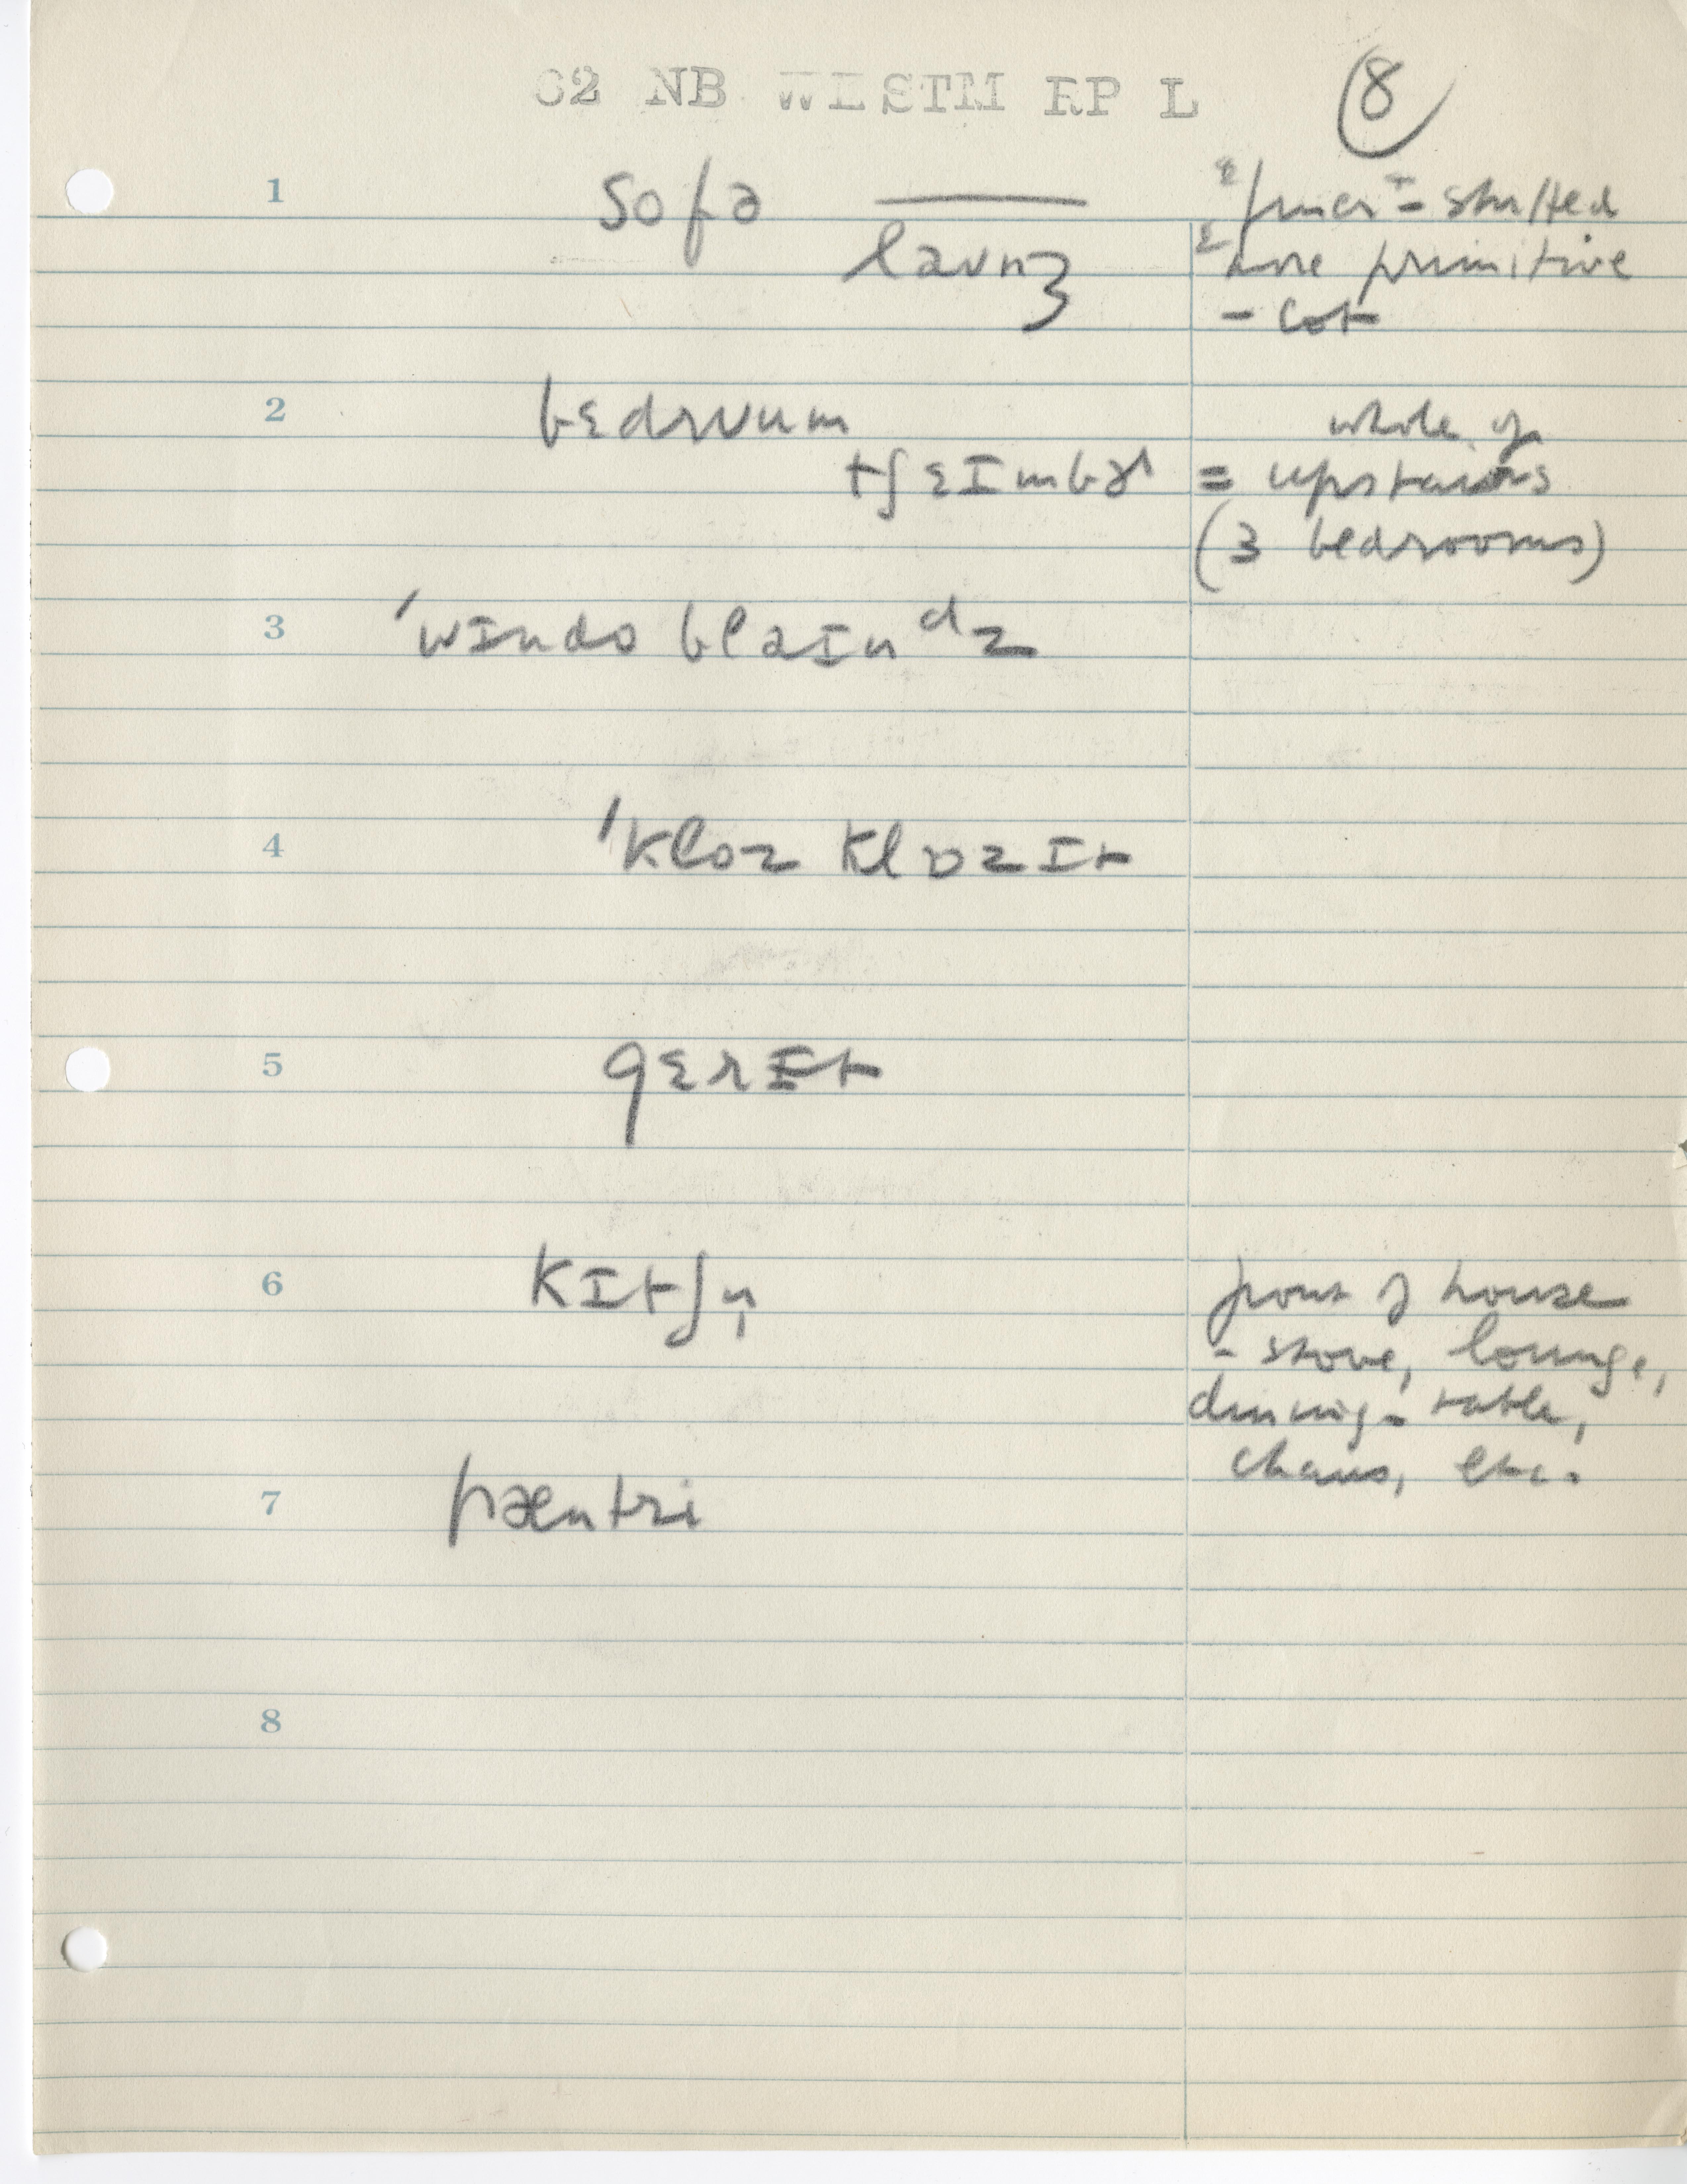 62 NB WESTM RP L 8
1 sofə finer - stuffed
laʊnʒ more primitive
- cot
2 bɛdrʊum whole of
tʃɛɪmbɚ = upstairs
(3 bedrooms)
3 ˈwɪndo blaɪnᵈz
4 ˈkloz klɒzɪt
5 gɛrɪt
6 kɪtʃn̩ front of house
- stove, lounge,
dining-table,
chairs, etc.
7 pæntri
8